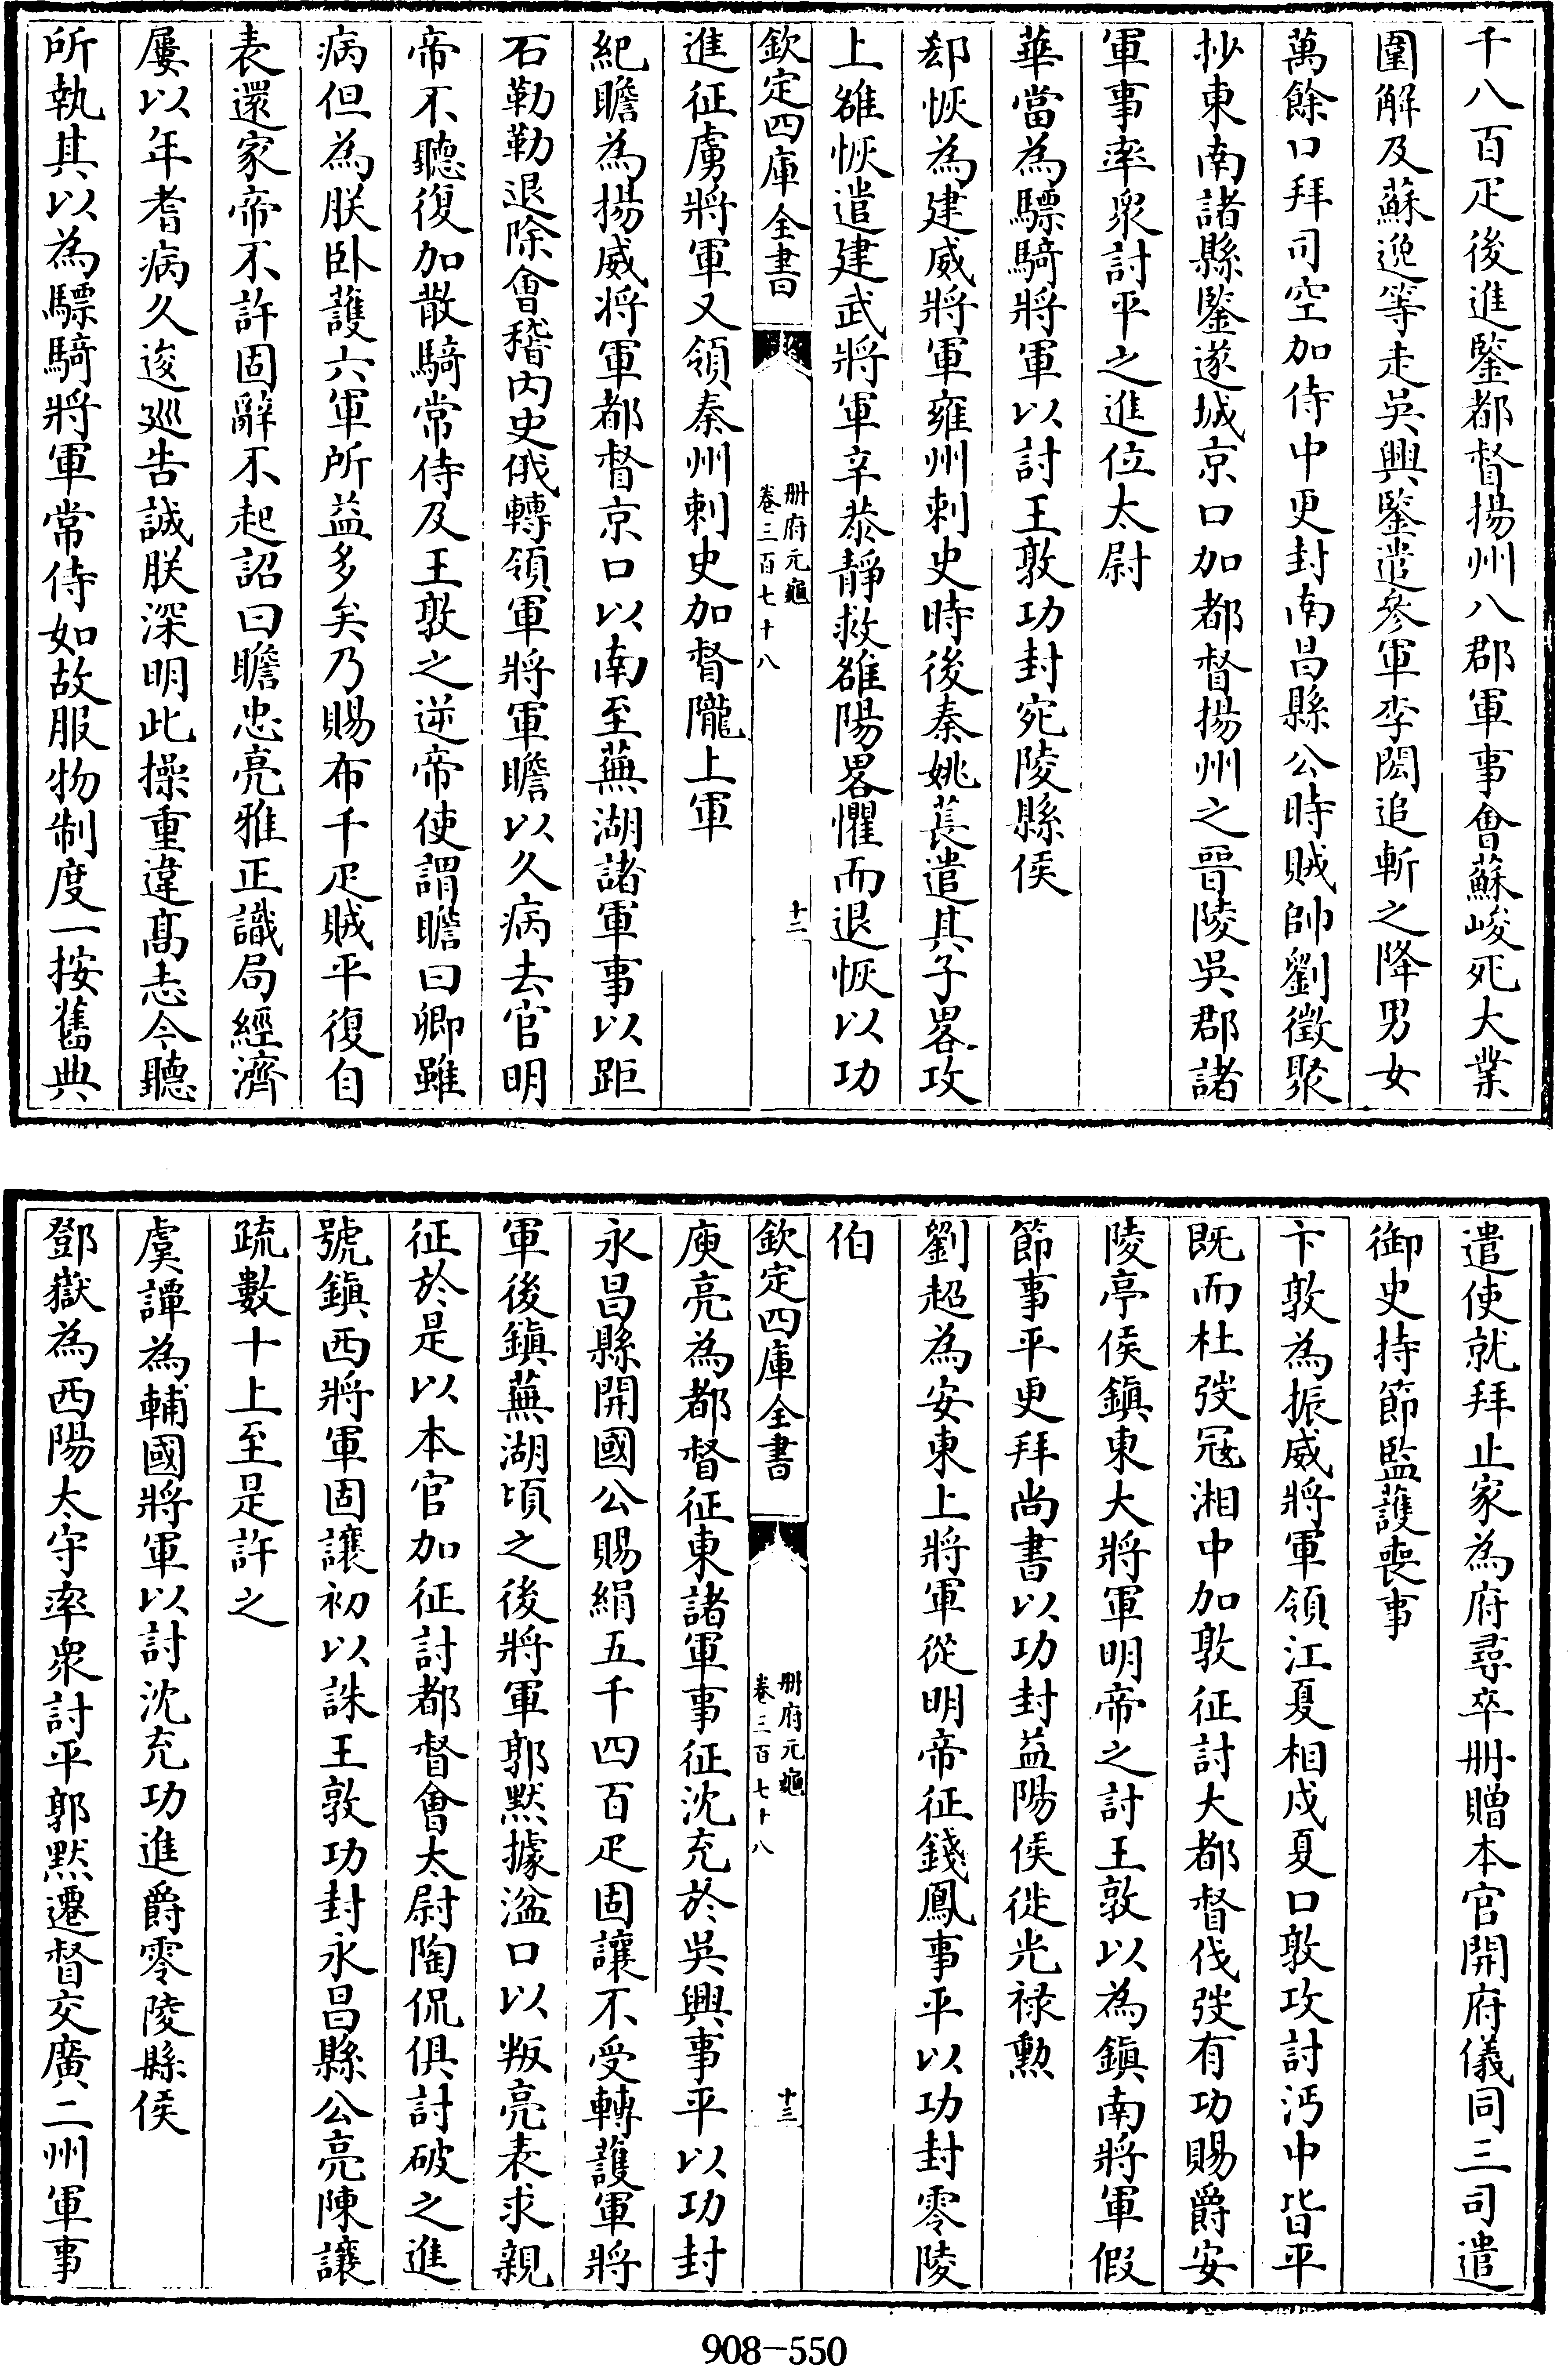 千八百疋後進鑒都督揚州八郡軍事會蘇峻死大業
圍解及蘇逸等走吳興鑒遣參軍李閎追斬之降男女
萬餘口拜司空加侍中更封南昌縣公時賊帥劉徵聚
抄東南諸縣鑒遂城京口加都督揚州之晉陵吳郡諸
軍事率衆討平之進位太尉
華當為驃騎將軍以討王敦功封宛陵縣侯
郄恢為建威將軍雍州刺史時後秦姚萇遣其子畧攻
上雒恢遣建武將軍辛恭靜救雒陽畧懼而退恢以功
欽定四庫全書
冊府元龜
卷三百七十八
十二
進征虜將軍又領秦州刺史加督隴上軍
紀瞻為揚威將軍都督京口以南至蕪湖諸軍事以距
石勒勒退除會稽內史俄轉領軍將軍瞻以久病去官明
帝不聽復加散騎常侍及王敦之逆帝使謂瞻曰卿雖
病但為朕卧護六軍所益多矣乃賜布千疋賊平復自
表還家帝不許固辭不起詔曰瞻忠亮雅正識局經濟
屢以年耆病久逡廵告誠朕深明此操重違髙志今聽
所執其以為驃騎將軍常侍如故服物制度一按舊典
遣使就拜止家為府尋卒冊贈本官開府儀同三司遣
御史持節監護喪事
卞敦為振威將軍領江夏相戍夏口敦攻討沔中皆平
既而杜弢冦湘中加敦征討大都督伐弢有功賜爵安
陵亭侯鎮東大將軍明帝之討王敦以為鎮南將軍假
節事平更拜尚書以功封益陽侯徙光禄勲
劉超為安東上將軍從明帝征錢鳳事平以功封零陵
伯
欽定四庫全書
冊府元龜
卷三百七十八
十三
庾亮為都督征東諸軍事征沈充於吳興事平以功封
永昌縣開國公賜絹五千四百疋固讓不受轉護軍將
軍後鎮蕪湖頃之後將軍郭默據湓口以叛亮表求親
征於是以本官加征討都督會太尉陶侃俱討破之進
號鎮西將軍固讓初以誅王敦功封永昌縣公亮陳讓
疏數十上至是許之
虞譚為輔國將軍以討沈充功進爵零陵縣侯
鄧嶽為西陽太守率衆討平郭默遷督交廣二州軍事
908-550